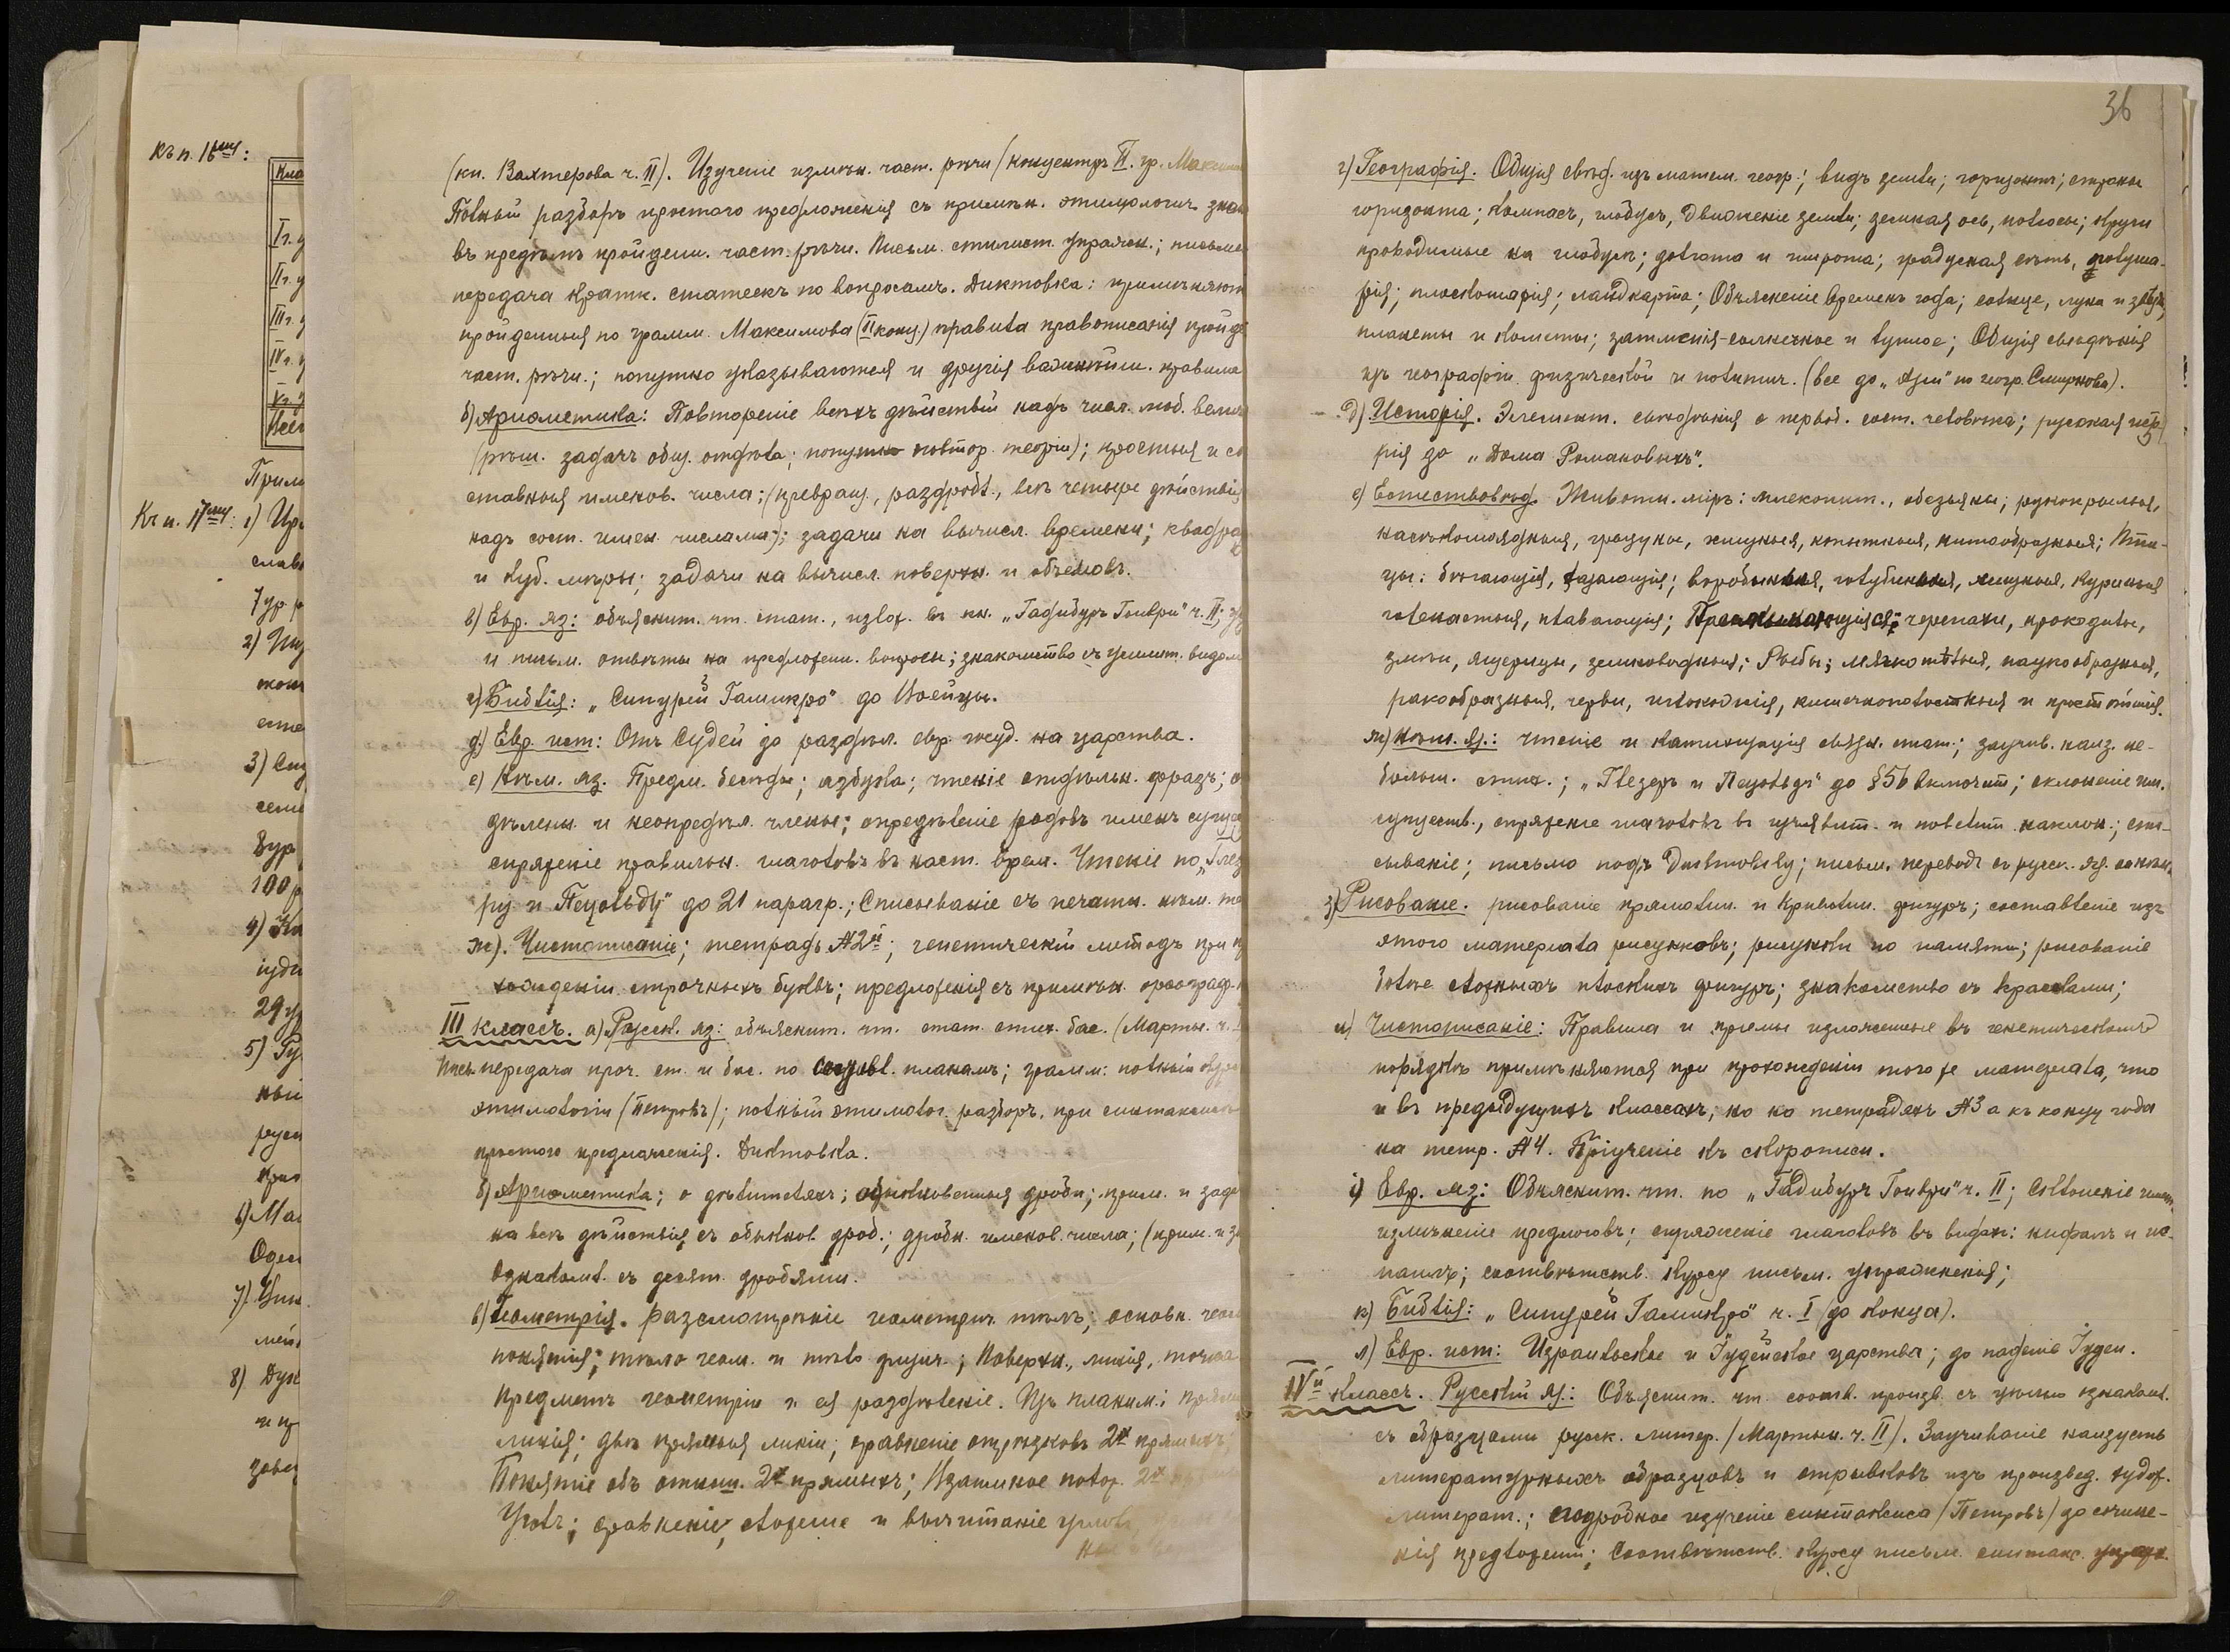 Къ п. 16му:
Кла
I г. у
II г. у
III г. у
IV г. у
Прим
Къ п. 17му: 1) Цр
слав
7 ур. р
2)
3)
семе
8 ур
100 р
4)
29 ур
5) Гу
ный
русс
6) Ма
Оден
7)
8) Дух
и пр
завед
(кн. Вахтерова ч. II). Изученіе измѣн. част. рѣчи (концентръ II. гр. Максим
Полный разборъ простого предложенія съ примѣн. этимологич. знан
въ предѣлѣ пройден. част. рѣчи. Письм. стилист. упражн.; письмен
передача кратк. статеекъ по вопросамъ. Диктовка: примѣняют
пройденныя по грамм. Максимова (II конц.) правила правописанія пройд
част. рѣчи.; попутно указываются и другія важнѣйш. правила
б) Ариѳметика: Повтореніе всѣхъ дѣйствій надъ числ. люб. велич
(рѣш. задачъ общ. отдѣла; попутно повтор. теоріи); простыя и со
ставныя именов. числа; (превращ., раздробл., всѣ четыре дѣйствія
надъ сост. имен. числами); задачи на вычисл. времени; квадра
и куб. мѣры; задачи на вычисл. поверхн. и объемовъ.
в) Евр. яз: объяснит. чт. стат., излож. въ кн. „Гадибуръ Гоиври" ч. II;
и письм. отвѣты на предложен. вопросы; знакомство съ усилит. видом
г) Библія: „Сипурей Гамикро" до Шейцы.
д) Евр. ист: Отъ Судей до раздѣл. евр. жуд. на царства.
е) Нѣм. яз. Предм. бесѣды; азбука; чтеніе отдѣльн. фразъ; о
дѣленн. и неопредѣл. члены; опредѣленіе родовъ именъ сущес
спряженіе правильн. глаголовъ въ наст. врем. Чтеніе по „Глез
ру и Пецольду" до 21 парагр.; Списываніе съ печатн. нѣм. те
ж). Чистописаніе; тетрадь №2й; генетическій методъ при п
хожденіи строчныхъ буквъ; предложенія съ примѣн. орѳограф.
III классъ. а) Русск. яз: объяснит. чт. стат. стих. бас. (Марты. ч.
Пись. передача проч. ст. и бас. по составл. планамъ; грамм: полный курс
этимологіи (Петровъ); полный этимолог. разборъ, при синтаксич
простого предложенія. Диктовка.
б) Ариѳметика; о дѣлителяхъ; обыкновенныя дроби; прим. и зада
на всѣ дѣйствія съ обыкнов. дроб.; дробн. именов. числа; (прим. и за
Ознакомл. съ десят. дробями.
в) Геометрія. разсмотрѣніе геометрич. тѣлъ; основн. геом
понятія; тѣло геом. и тѣло физич.; Поверхн., линія, точка
предметъ геометріи и ея раздѣленіе. Изъ планим.: прямая
линія; двѣ прямыя линіи; сравненіе отрѣзковъ 2х прямыхъ;
Понятіе объ отнош. 2х прямыхъ; Взаимное полож. 2х
Уголъ; сравненіе, сложеніе и вычитаніе угловъ,
36
г) Географія. Общія свѣд. изъ матем. геогр.; видъ земли; горизонтъ; страны
горизонта; компасъ, глобусъ, движеніе земли; земная ось, полюсы; круги
проводимые на глобусѣ; долгота и широта; градусная сѣть, полуша-
рія; плоскошарія; ландкарта; Объясненіе временъ года; солнце, луна и звѣзды,
планеты и кометы; затменія - солнечное и лунное; Общія свѣдѣнія
изъ географіи физической и политич. (все до „Азіи" по геогр. Смирнова).
д) Исторія. Элемент. свѣдѣнія о первоб. сост. человѣка; русская исто-
рія до „Дома Романовыхъ".
е) Естествовѣд. Животн. міръ: млекопит., обезьяны; рукокрылыя,
насѣкомоядныя, грызуны, хищныя, копытныя, китообразныя; Пти-
цы: бѣгающія, лазающія; воробьиныя, голубиныя, хищныя, куриныя
голенастыя, плавающія; Пресмыкающіяся: черепахи, крокодилы,
змѣи, ящерицы, земноводныя; Рыбы; мягкотѣлыя, паукообразныя,
ракообразныя, черви, иглокожія, кишечнополостныя и простѣйшія.
ж) Нѣм. Яз.: чтеніе и катихизація связн. стат.; заучив. наиз. не-
больш. стих.; „Глезеръ и Пецольдъ" до §56 включит; склоненіе им.
существ., спряженіе глаголовъ въ изъявит. и повелит. наклон.; спи-
сываніе; письмо подъ диктовку; письм. переводъ съ русск. яз. на нѣм.
з) Рисованіе. рисованіе прямолин. и криволин. фигуръ; составленіе изъ
этого матеріала рисунковъ; рисунки по памяти; рисованіе
болѣе сложныхъ плоскихъ фигуръ; знакомство съ красками;
и) Чистописаніе: Правила и пріемы изложенные въ генетическомъ
порядкѣ примѣняются при прохожденіи того же матеріала, что
и въ предыдущихъ классахъ; но на тетрадяхъ №3 а къ концу года
на тетр. №4. Пріученіе къ скорописи.
і) Евр. яз: Объяснит. чт. по „Гадибуръ Гоиври" ч. II; Склоненіе имен.
измѣненіе предлоговъ; спряженіе глаголовъ въ видахъ: нифалъ и на-
палъ; соотвѣтств. курсу письм. упражненія;
к) Библія: „Сипурей Гамикро" ч. I (до конца).
л) Евр. ист: Израильское и Іудейское царства; до паденія Іудеи.
IVй классъ. Русскій яз.: Объяснит. чт. соотв. произв. съ цѣлью ознаком.
съ образцами русск. литер. (Мартын. ч. II). Заучиваніе наизусть
литературныхъ образцовъ и отрывковъ изъ произвед. худож.
литерат.; подробное изученіе синтаксиса (Петровъ) до сочине-
нія предложеній; Соотвѣтств. курсу письм. синтакс. упраж.